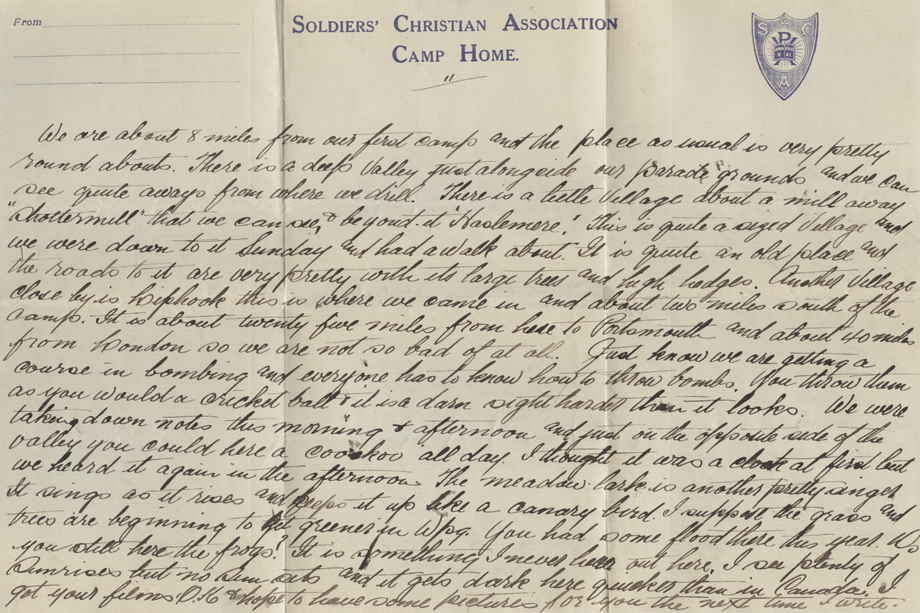 From
SOLDIERS' CHRISTIAN ASSOCIATION
CAMP HOME.
S C A
"
We are about 8 miles from our first camp and the place as usual is very pretty
round abouts. There is a deep Valley just alongside our parade grounds and we can
see quite aways from where we drill. There is a little Village about a mill away
"Shottermill" that we can see, & beyond it "Haslemere". This is quite a sized Village and
we were down to it Sunday and had a walk about. It is quite an old place and
the roads to it are very pretty with its large trees and high hedges. Another Village
close by is Liphook this is where we came in and about two miles south of the
camp. It is about twenty five miles from here to Portsmouth and about 40 miles
from London so we are not so bad of at all. Just know we are getting a
course in bombing and everyone has to know how to throw bombs. You throw them
as you would a cricket ball & it is a darn sight harder than it looks. We were
taking down notes this morning & afternoon and just on the opposite side of the
valley you could here a cookoo all day. I thought it was a clock at first but
we heard it again in the afternoon. The meadow lark is another pretty singer
It sings as it rises and keeps it up like a canary bird. I suppose the grass and
trees are beginning to get greener in Wpg. You had some flood there this year. Do
you still here the frogs? It is something I never hear out here, I see plenty of
Sunrises but no Sun sets and it gets dark here quicker than in Canada. I
got your films O.K & hope to have some pictures for you the next time I write.